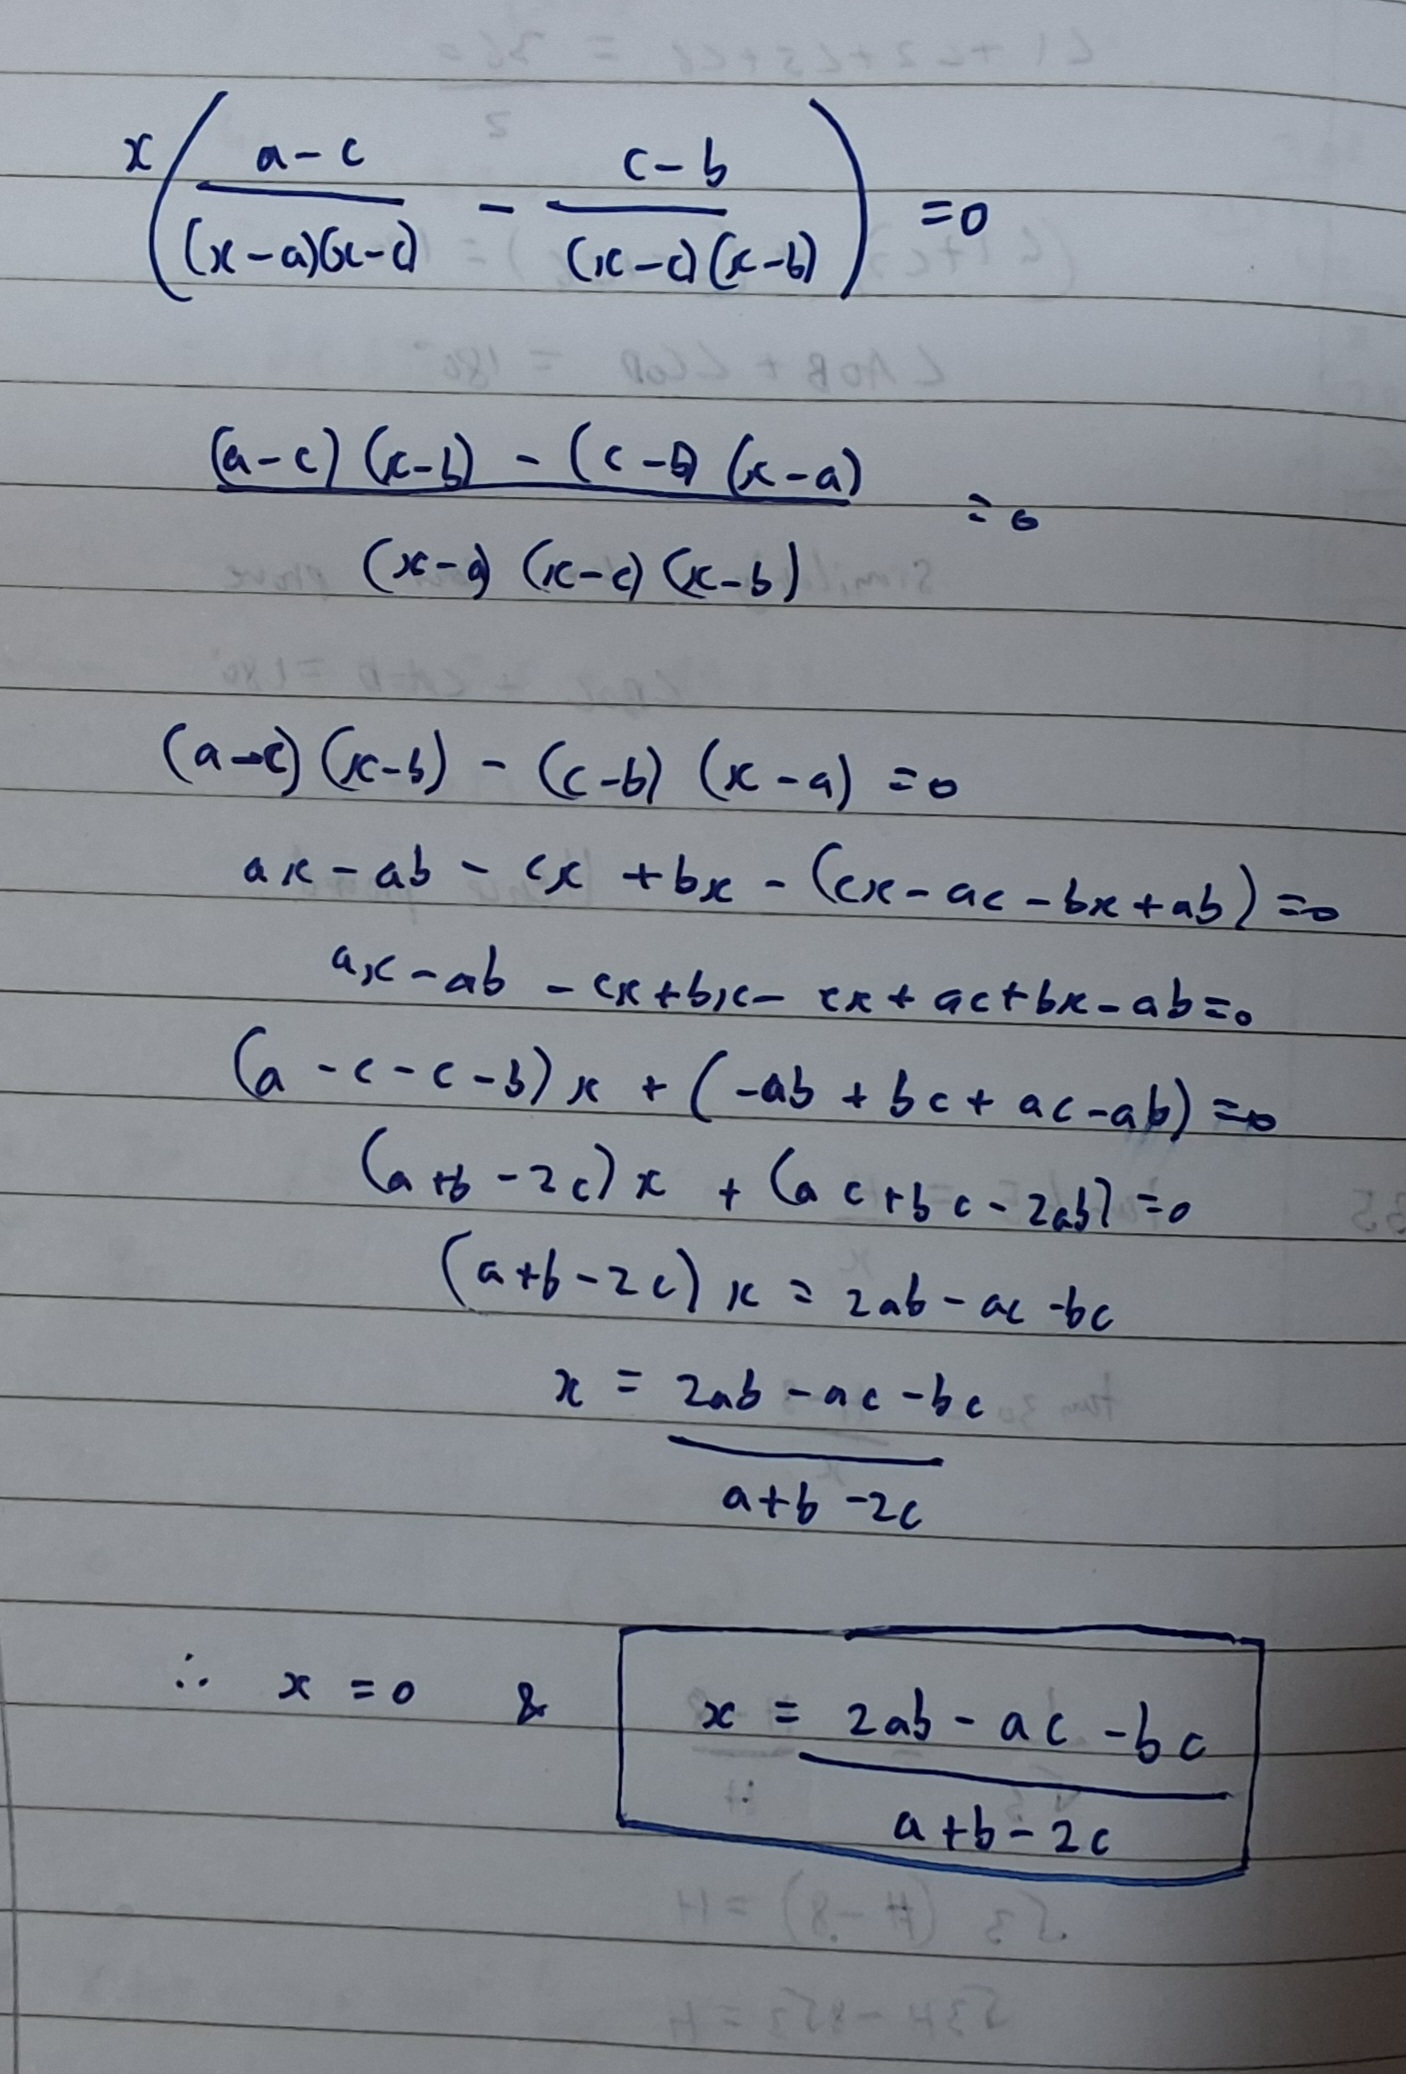 x ( (a-c)/((x-a)(x-c)) - (c-b)/((x-c)(x-b)) ) =0
((a-c) (x-b) - (c-b) (x-a))/((x-a) (x-c) (x-b)) = 0
(a-c) (x-b) - (c-b) (x-a) =0
ax-ab - cx +bx - (cx-ac-bx+ab)=0
ax-ab - cx+bx- cx+ac+bx-ab=0
(a-c-c-b)x + (-ab+bc+ac-ab)=0
(a+b-2c)x + (ac+bc-2ab)=0
(a+b-2c) x = 2ab-ac-bc
x = (2ab-ac-bc)/(a+b-2c)
∴ x=0 & x = (2ab-ac-bc)/(a+b-2c)